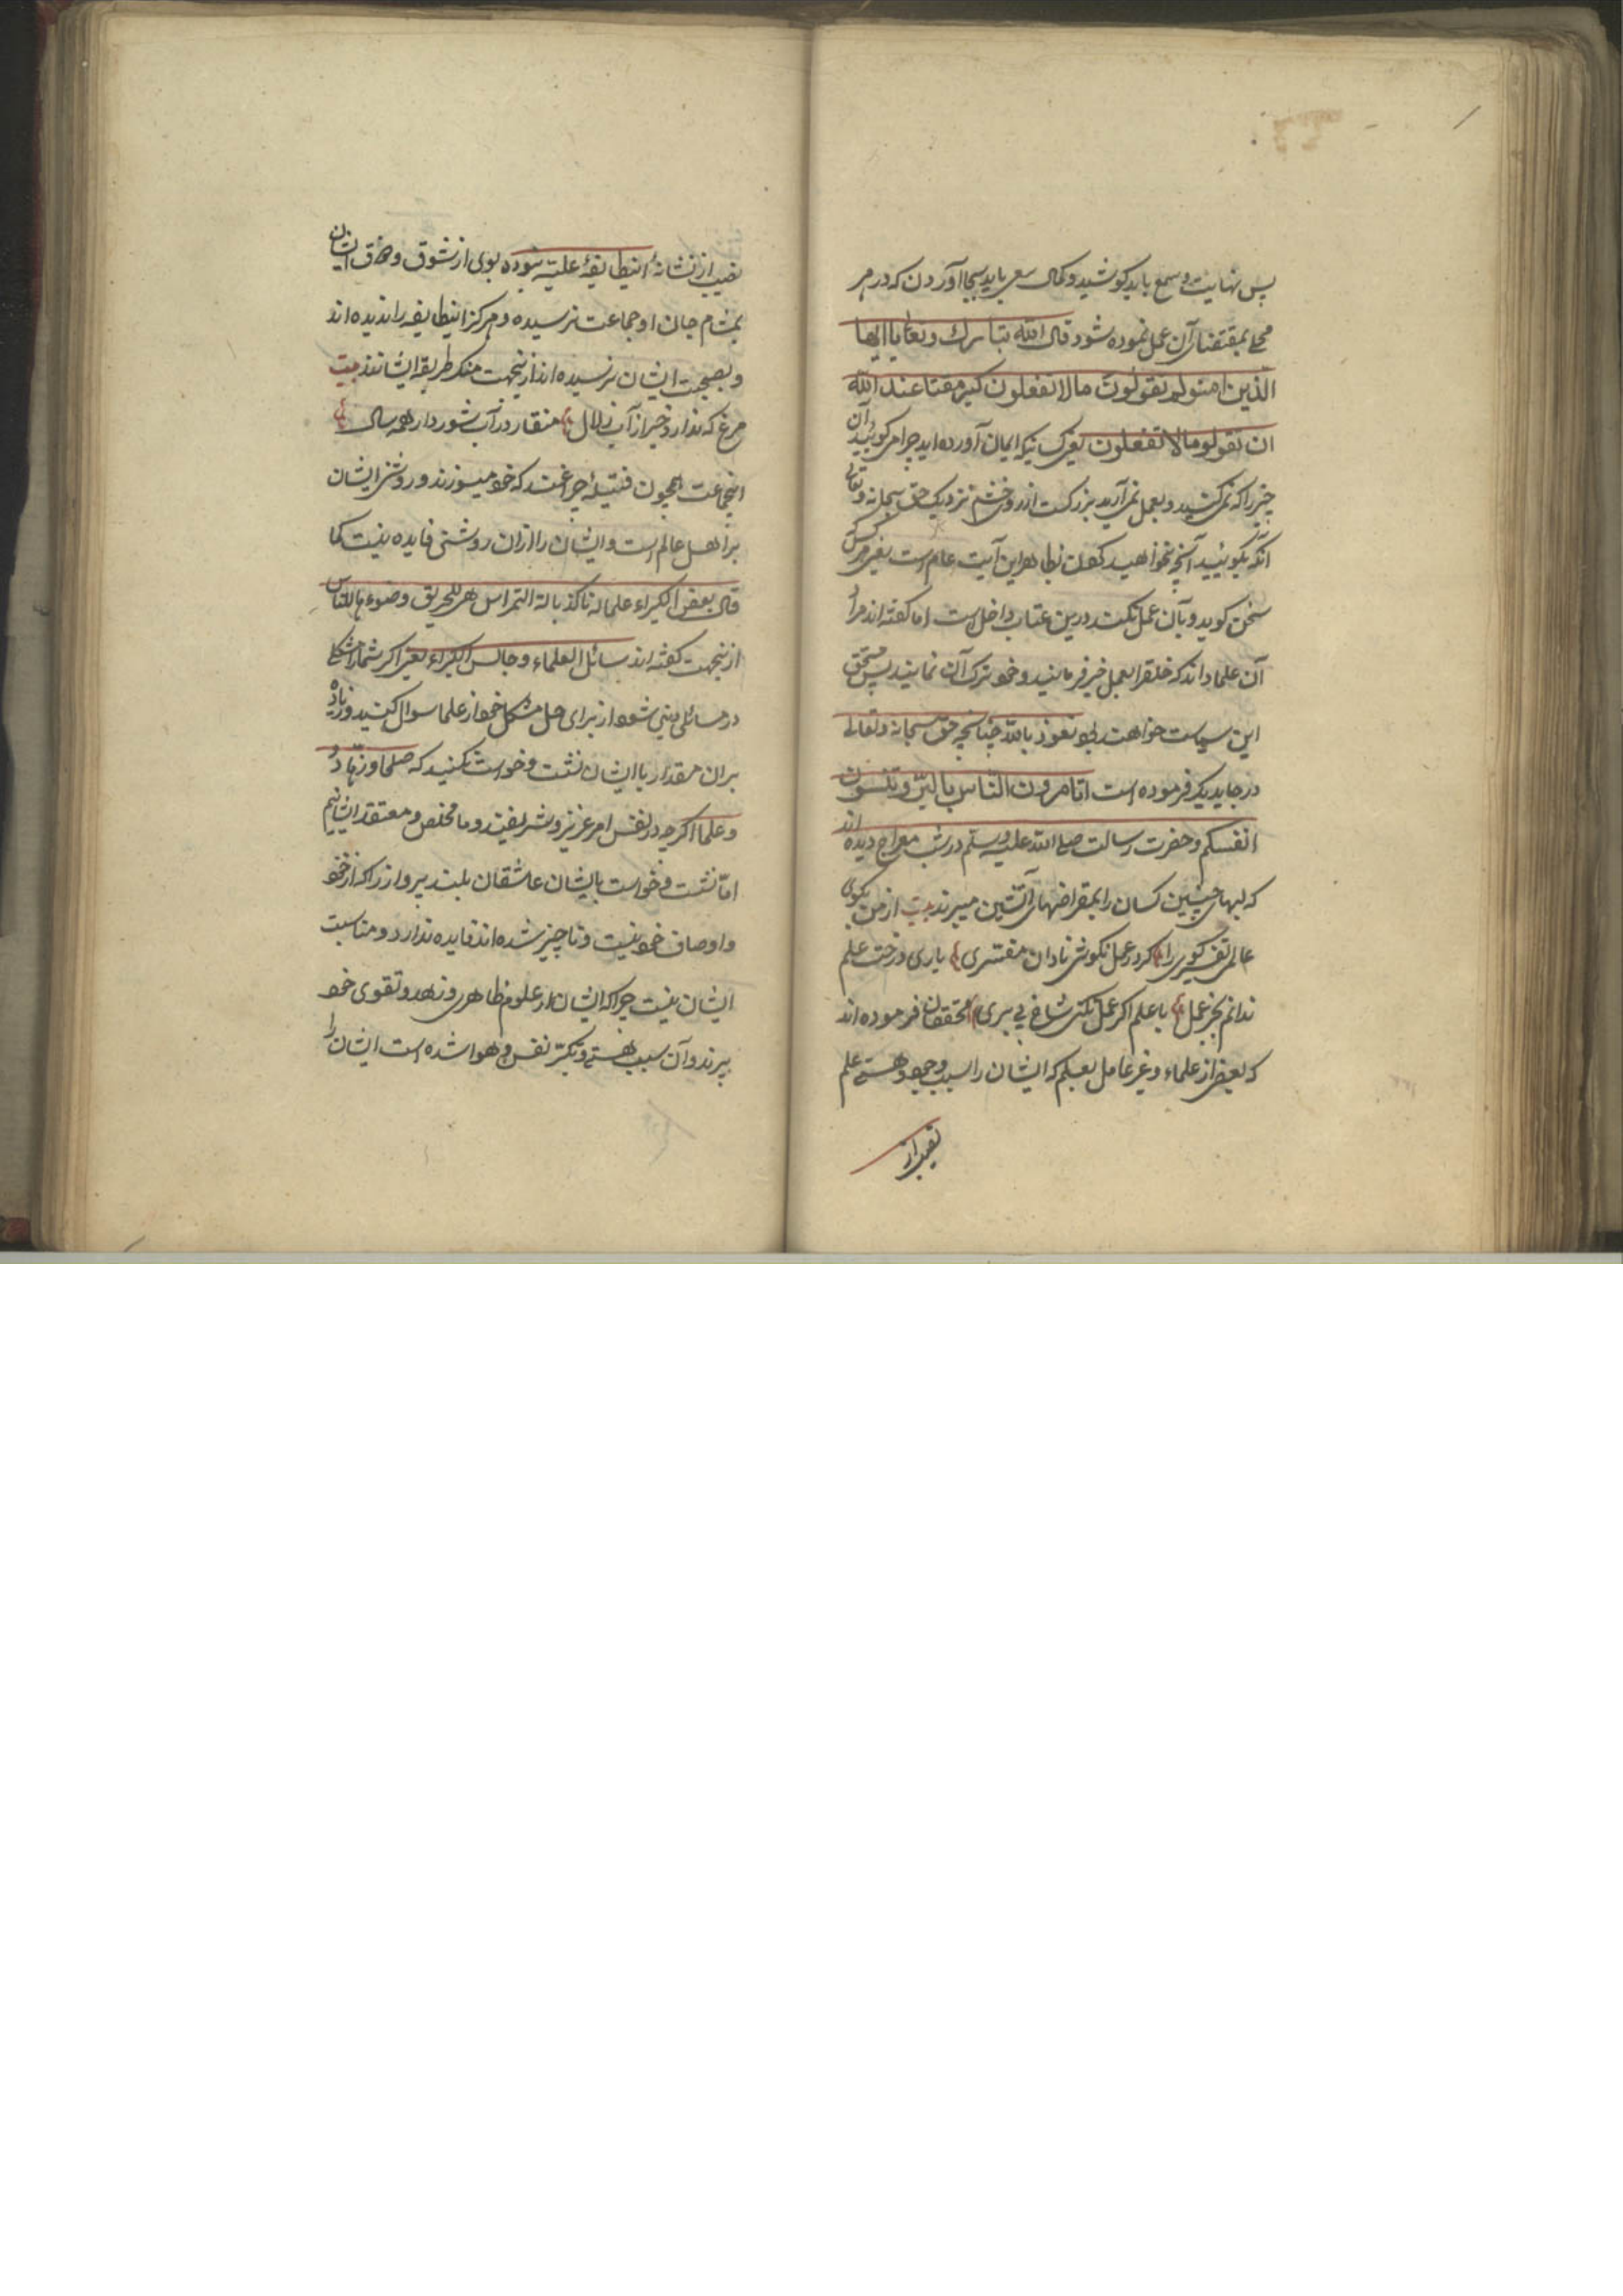 پس نهایت وسع باید کوشید و کمال سعی باید بجا آوردن که در هر
محلی بمقتضای آن عمل نموده شود قال الله تبارک و تعالی یا ایها
الذین امنو لم تقولون مالا تفعلون کبر مقتا عند الله
ان تقولو مالا تفعلون یعنی کسانیکه ایمان آورده اید چرا میکوئید آن
چیز را که نمیکنید و بعمل نمی آرید بزرکست از روی خشم نزدیک حق سبحانه و تعالی
آنکه بکوئید آنچه نخواهید کرد بظاهر این آیت عام است یعنی هر کس
سخن کوید و بآن عمل نکند درین عتاب داخل است اما کفته اند مراد
آن علما اند که خلق را بعمل خیر فرمایند و خود ترک آن نمایند پس مستحق
این سیاست خواهند بود نعوذ بالله چنانچه حق سبحانه و تعالی
در جای دیکر فرموده است اتامرون الناس بالبر و تنسون
انفسکم و حضرت رسالت صلی الله علیه وسلم در شب معراج دیده اند
که لبهای چنین کسان را بمقراضهای آتشین میبرند بیت از من بکوی
عالم تفسیر کوی را کر در عمل نکوشی نادان مفسری باری درخت علم
ندانم بجز عمل با علم اکر عمل نکنی شاخ بی بری محققان فرموده اند
که بعضی از علماء و غیر عامل بعلم که ایشان را سبب وجود هستی علم
نصیب از
نصیب از نشانهٔ اینطایفهٔ علیه نبوده بوی از شوق و ذوق ایشان
بمشام جان او جماعت نرسیده و هرکز اینطایفه را ندیده اند
و بصحبت ایشان نرسیده اند ازینجهت منکر طریقه ایشانند بیت
مرغ که ندارد خبر از آب زلال منقار در آب شور دارد همه سال
اینجماعت همچون فتیلهٔ چراغند که خود میسوزند و روشنی ایشان
بر اهل عالم است و ایشان را ازان روشنی فایده نیست کما
قال بعض الکبراء علماله ناکذبالة النبراس هی للحریق وضوءها للناس
ازینجهت کفته اند سائل العلماء و جالس الکبراء یعنی اکر شما را مشکلی
در مسائل دینی شود از برای حل مشکل خود از علما سوال کنید و زیاده
بران مقدار با ایشان نشست و خواست نکنید که صلحا و زهاد
و علما اکرچه در نفس امر عزیز و شریفند و ما مخلص و معتقد ایشانیم
اما نشست و خواست بایشان عاشقان بلند پرواز را که از خود
و اوصاف خود نیست و ناچیز شده اند فایده ندارد و مناسبت
ایشان نیست چرا که ایشان از علوم ظاهری و زهد و تقوی خود
پرند و آن سبب هستی و تکبر نفس و هوا شده است ایشان را